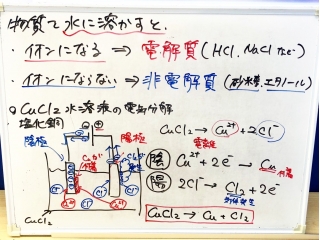 物質を水に溶かすと、
・イオンになる ⇒ 電解質 (HCl、NaCl など)
・イオンにならない ⇒ 非電解質 (砂糖、エタノール)
CuCl2 水溶液の電気分解
塩化銅
陰極
陽極
CuCl2
CuCl2 → Cu2+ + 2Cl-
電離
陰 Cu2+ + 2e- → Cu 付着
陽 2Cl- → Cl2 + 2e-
気体発生
CuCl2 → Cu + Cl2